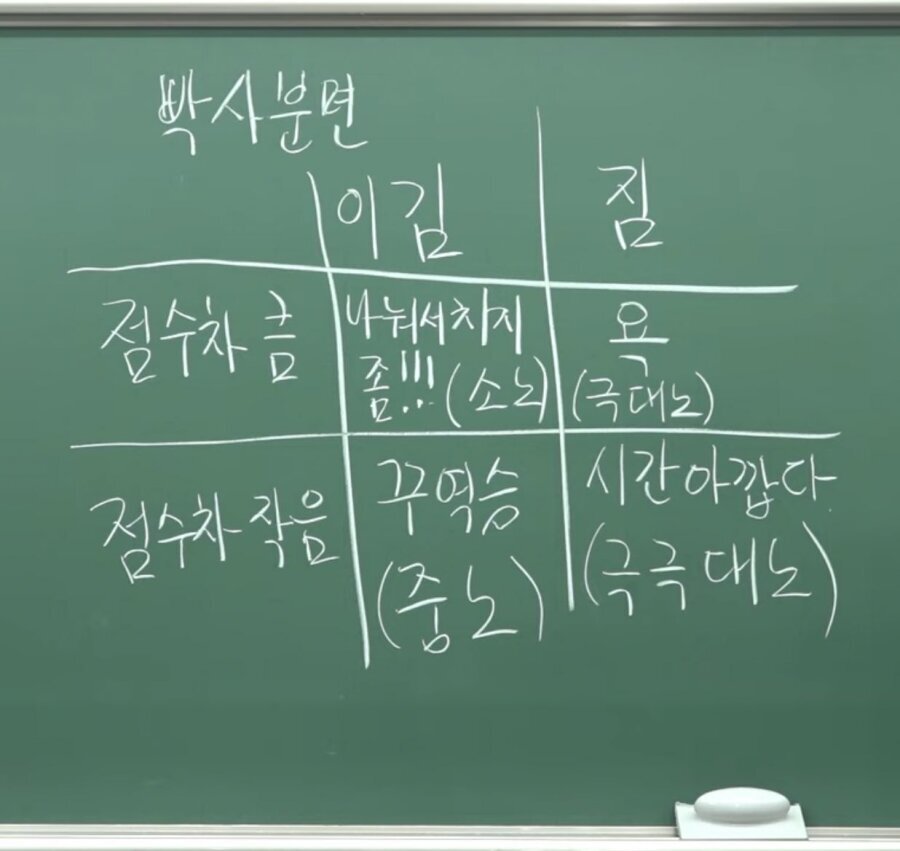 빡사분면
이김 짐
점수차 큼 나눠서치지 욕
좀!!! (소노) (극대노)
점수차 작음 꾸역승 시간아깝다.
(중노) (극극대노)